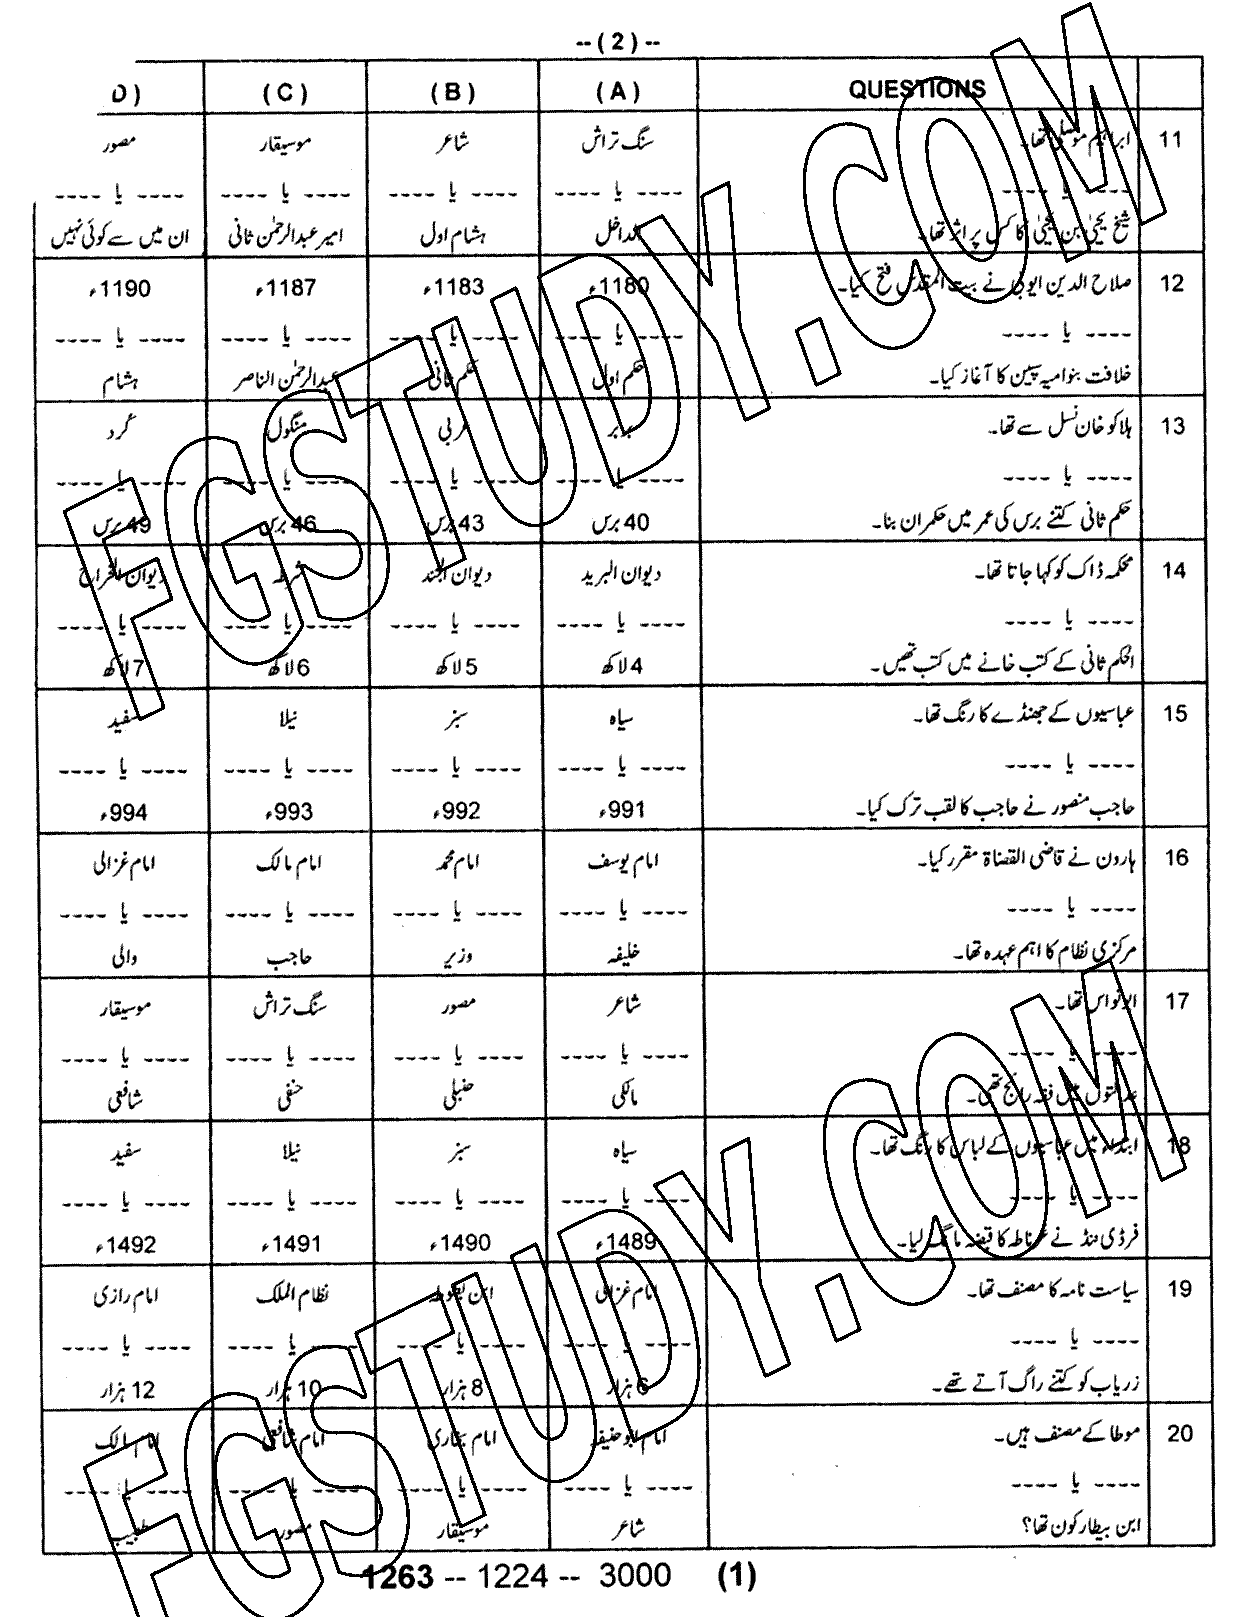 -- ( 2 ) --
QUESTIONS ( A ) ( B ) ( C ) D )
11 ابراہیم موصلی تھا۔ سنگ تراش شاعر موسیقار مصور
---- یا ---- ---- یا ---- ---- یا ---- ---- یا ---- ---- یا ----
شیخ یحییٰ بن یحییٰ کا کس پر اثر تھا۔ الداخل ہشام اول امیر عبدالرحمٰن ثانی ان میں سے کوئی نہیں
12 صلاح الدین ایوبی نے بیت المقدس فتح کیا۔ 1180ء 1183ء 1187ء 1190ء
---- یا ---- ---- یا ---- ---- یا ---- ---- یا ---- ---- یا ----
خلافت بنوامیہ سپین کا آغاز کیا۔ حکم اول حکم ثانی عبدالرحمٰن الناصر ہشام
13 ہلاکو خان نسل سے تھا۔ بربر عربی منگول کُرد
---- یا ---- ---- یا ---- ---- یا ---- ---- یا ---- ---- یا ----
حکم ثانی کتنے برس کی عمر میں حکمران بنا۔ 40 برس 43 برس 46 برس 49 برس
14 محکمہ ڈاک کو کہا جاتا تھا۔ دیوان البرید دیوان الجند شرطہ دیوان الخراج
---- یا ---- ---- یا ---- ---- یا ---- ---- یا ---- ---- یا ----
الحکم ثانی کے کتب خانے میں کتب تھیں۔ 4 لاکھ 5 لاکھ 6 لاکھ 7 لاکھ
15 عباسیوں کے جھنڈے کا رنگ تھا۔ سیاہ سبز نیلا سفید
---- یا ---- ---- یا ---- ---- یا ---- ---- یا ---- ---- یا ----
حاجب منصور نے حاجب کا لقب ترک کیا۔ 991ء 992ء 993ء 994ء
16 ہارون نے قاضی القضاۃ مقرر کیا۔ امام یوسف امام محمد امام مالک امام غزالی
---- یا ---- ---- یا ---- ---- یا ---- ---- یا ---- ---- یا ----
مرکزی نظام کا اہم عہدہ تھا۔ خلیفہ وزیر حاجب والی
17 ابونواس تھا۔ شاعر مصور سنگ تراش موسیقار
---- یا ---- ---- یا ---- ---- یا ---- ---- یا ---- ---- یا ----
عدالتوں میں فقہ رائج تھی۔ مالکی حنبلی حنفی شافعی
18 ابتداء میں عباسیوں کے لباس کا رنگ تھا۔ سیاہ سبز نیلا سفید
---- یا ---- ---- یا ---- ---- یا ---- ---- یا ---- ---- یا ----
فرڈی ننڈ نے غرناطہ کا قبضہ مانگ لیا۔ 1489ء 1490ء 1491ء 1492ء
19 سیاست نامہ کا مصنف تھا۔ امام غزالی ابن بطوطہ نظام الملک امام رازی
---- یا ---- ---- یا ---- ---- یا ---- ---- یا ---- ---- یا ----
زریاب کو کتنے راگ آتے تھے۔ 6 ہزار 8 ہزار 10 ہزار 12 ہزار
20 موطا کے مصنف ہیں۔ امام ابوحنیفہ امام بخاری امام شافعی امام مالک
---- یا ---- ---- یا ---- ---- یا ---- ---- یا ---- ---- یا ----
ابن بیطار کون تھا؟ شاعر موسیقار مصور طبیب
1263 -- 1224 -- 3000 (1)
FGSTUDY.COM
FGSTUDY.COM